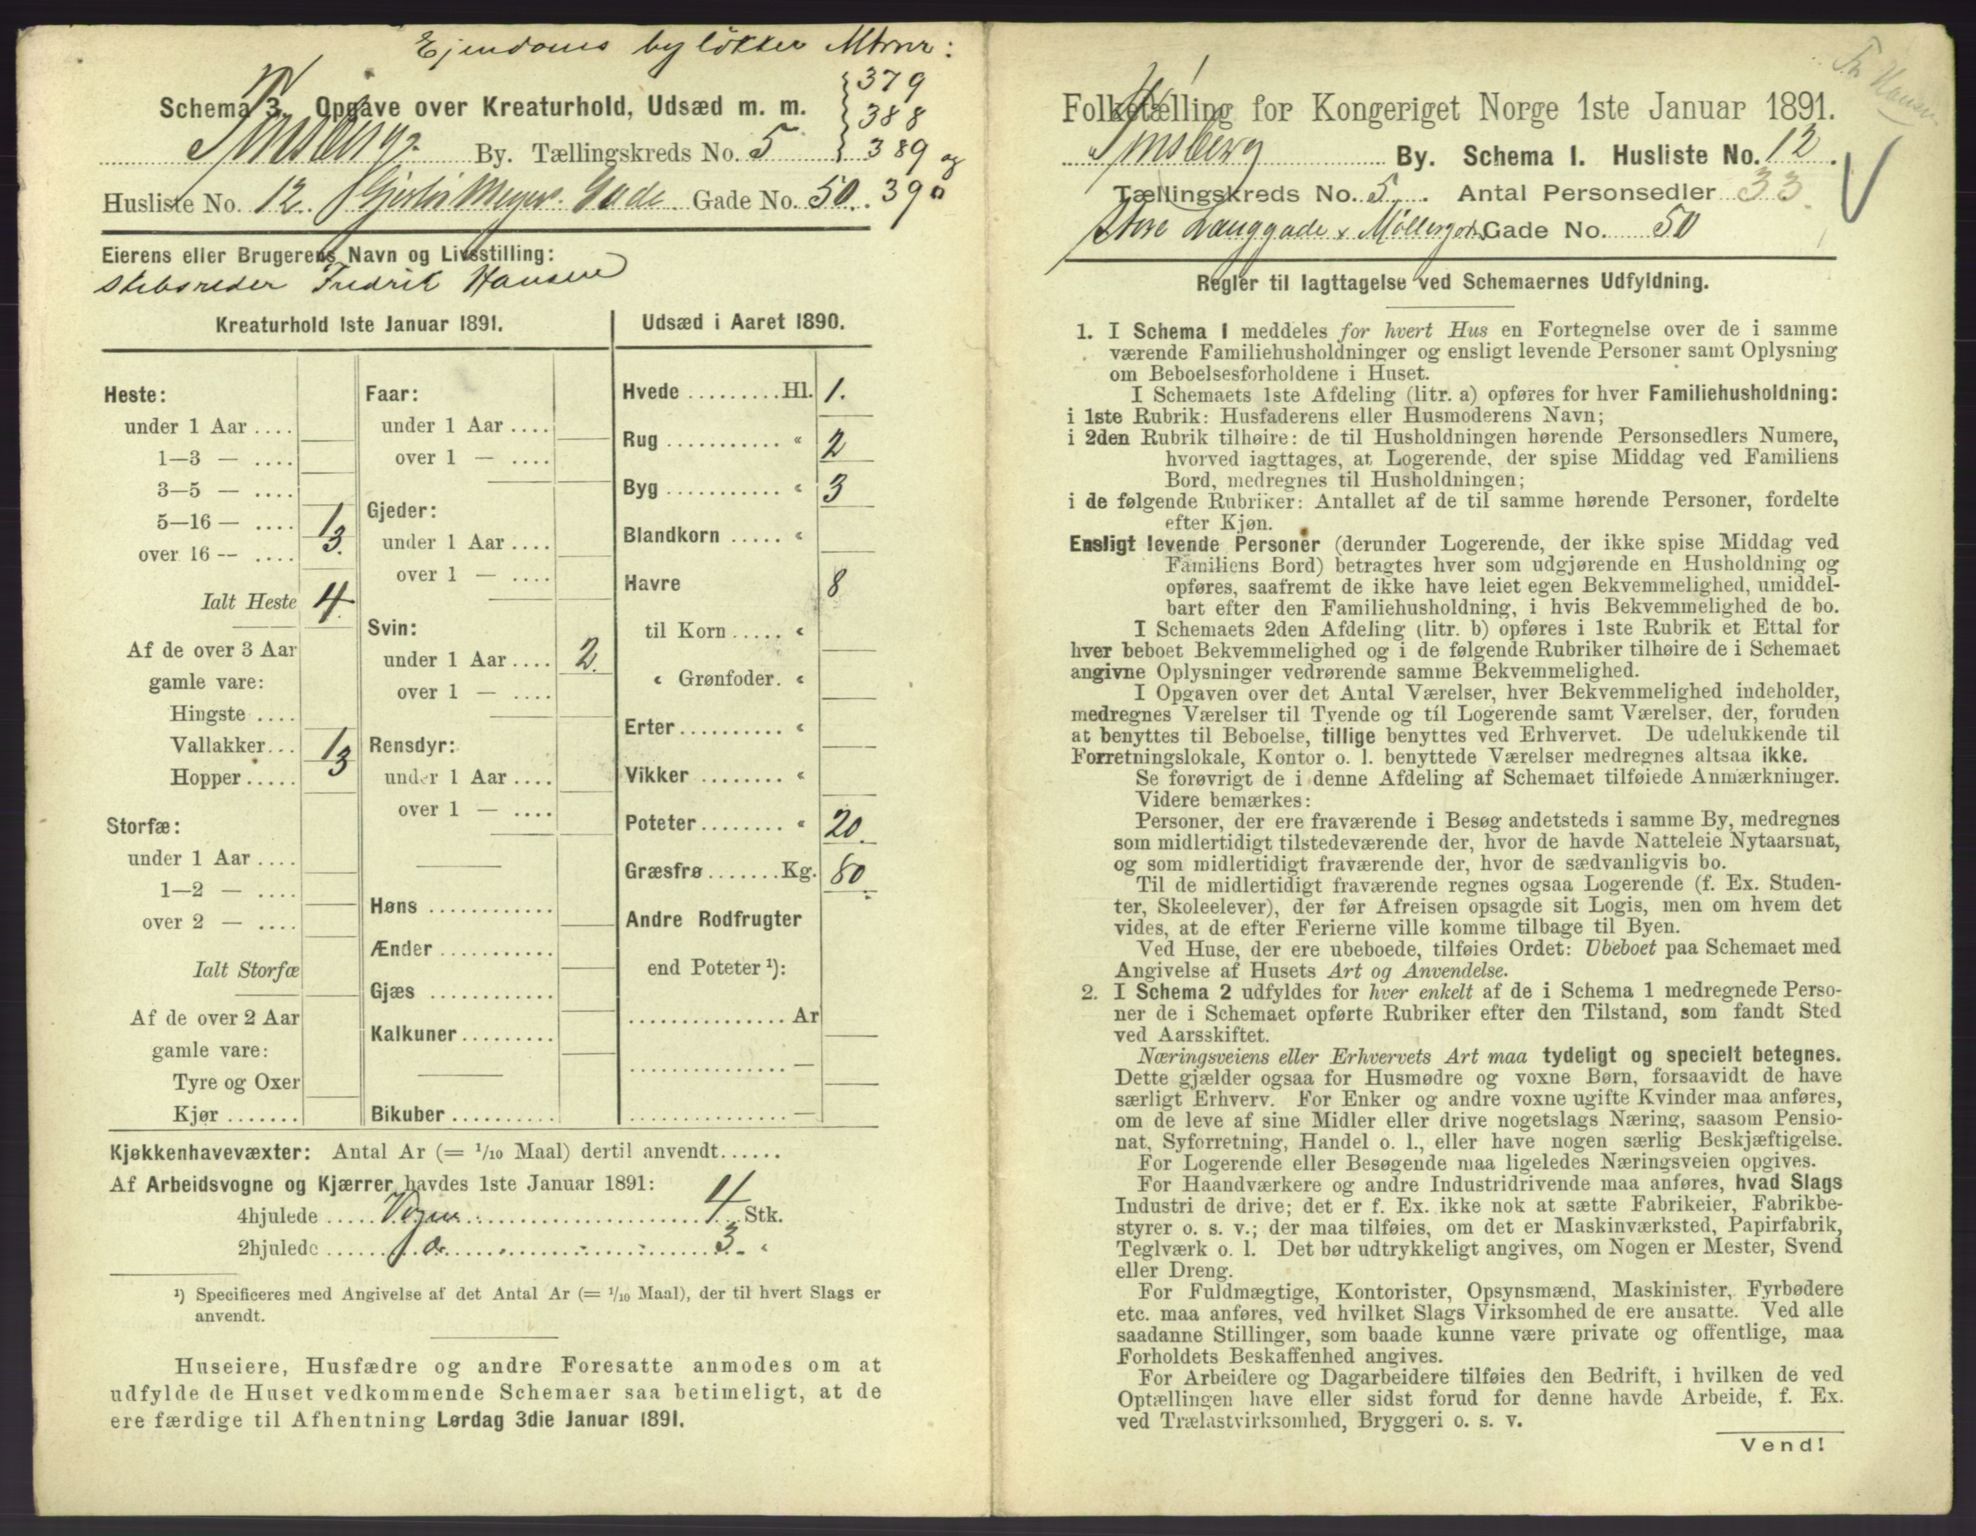 Ejendoms byløkker Mtrnr:
379
388
389 og
390
Schema 3. Opgave over Kreaturhold, Udsæd m. m.
Tønsberg By. Tællingskreds No. 5
Husliste No. 12. Meyers Gade Gade No. 50.
Eierens eller Brugerens Navn og Livsstilling:
Skibsreder Fredrik Hansen
Kreaturhold 1ste Januar 1891.
Heste:
under 1 Aar ....
1—3 — ....
3—5 — ....
5—16 — .... 1
over 16 — .... 3.
Ialt Heste 4.
Af de over 3 Aar
gamle vare:
Hingste ....
Vallakker... 1
Hopper..... 3
Storfæ:
under 1 Aar ....
1—2 — ....
over 2 — ....
Ialt Storfæ
Af de over 2 Aar
gamle vare:
Tyre og Oxer
Kjør .......
Faar:
under 1 Aar ....
over 1 — ....
Gjeder:
under 1 Aar ....
over 1 — ....
Svin:
under 1 Aar .... 2.
over 1 — ....
Rensdyr:
under 1 Aar ....
over 1 — ....
Høns ............
Ænder ...........
Gjæs ............
Kalkuner.........
Bikuber ..........
Udsæd i Aaret 1890.
Hvede ......... Hl. 1.
Rug ........... “ 2
Byg ........... “ 3
Blandkorn ..... “
Havre 8
til Korn ..... “
“ Grønfoder. “
Erter.......... “
Vikker ........ “
Poteter........ “ 20.
Græsfrø....... Kg. 80
Andre Rodfrugter
end Poteter ¹):
............... Ar
............... —
............... —
Kjøkkenhavevæxter: Antal Ar (= 1/10 Maal) dertil anvendt......
Af Arbeidsvogne og Kjærrer havdes 1ste Januar 1891:
4hjulede ..... Vogne ..... 4 Stk.
2hjulede ..... do ..... 3. “
¹) Specificeres med Angivelse af det Antal Ar (= 1/10 Maal), der til hvert Slags er
anvendt.
Huseiere, Husfædre og andre Foresatte anmodes om at
udfylde de Huset vedkommende Schemaer saa betimeligt, at de
ere færdige til Afhentning Lørdag 3die Januar 1891.
Fr Hansen
Folketælling for Kongeriget Norge 1ste Januar 1891.
Tønsberg By. Schema 1. Husliste No. 12.
Tællingskreds No. 5. Antal Personsedler 33.
Store Langgade x Møllergd. Gade No. 50
Regler til Iagttagelse ved Schemaernes Udfyldning.
1. I Schema 1 meddeles for hvert Hus en Fortegnelse over de i samme
værende Familiehusholdninger og ensligt levende Personer samt Oplysning
om Beboelsesforholdene i Huset.
I Schemaets 1ste Afdeling (litr. a) opføres for hver Familiehusholdning:
i 1ste Rubrik: Husfaderens eller Husmoderens Navn;
i 2den Rubrik tilhøire: de til Husholdningen hørende Personsedlers Numere,
hvorved iagttages, at Logerende, der spise Middag ved Familiens
Bord, medregnes til Husholdningen;
i de følgende Rubriker: Antallet af de til samme hørende Personer, fordelte
efter Kjøn.
Ensligt levende Personer (derunder Logerende, der ikke spise Middag ved
Familiens Bord) betragtes hver som udgjørende en Husholdning og
opføres, saafremt de ikke have leiet egen Bekvemmelighed, umiddel-
bart efter den Familiehusholdning, i hvis Bekvemmelighed de bo.
I Schemaets 2den Afdeling (litr. b) opføres i 1ste Rubrik et Ettal for
hver beboet Bekvemmelighed og i de følgende Rubriker tilhøire de i Schemaet
angivne Oplysninger vedrørende samme Bekvemmelighed.
I Opgaven over det Antal Værelser, hver Bekvemmelighed indeholder,
medregnes Værelser til Tyende og til Logerende samt Værelser, der, foruden
at benyttes til Beboelse, tillige benyttes ved Erhvervet. De udelukkende til
Forretningslokale, Kontor o. l. benyttede Værelser medregnes altsaa ikke.
Se forøvrigt de i denne Afdeling af Schemaet tilføiede Anmærkninger.
Videre bemærkes:
Personer, der ere fraværende i Besøg andetsteds i samme By, medregnes
som midlertidigt tilstedeværende der, hvor de havde Natteleie Nytaarsnat,
og som midlertidigt fraværende der, hvor de sædvanligvis bo.
Til de midlertidigt fraværende regnes ogsaa Logerende (f. Ex. Studen-
ter, Skoleelever), der før Afreisen opsagde sit Logis, men om hvem det
vides, at de efter Ferierne ville komme tilbage til Byen.
Ved Huse, der ere ubeboede, tilføies Ordet: Ubeboet paa Schemaet med
Angivelse af Husets Art og Anvendelse.
2. I Schema 2 udfyldes for hver enkelt af de i Schema 1 medregnede Perso-
ner de i Schemaet opførte Rubriker efter den Tilstand, som fandt Sted
ved Aarsskiftet.
Næringsveiens eller Erhvervets Art maa tydeligt og specielt betegnes.
Dette gjælder ogsaa for Husmødre og voxne Børn, forsaavidt de have
særligt Erhverv. For Enker og andre voxne ugifte Kvinder maa anføres,
om de leve af sine Midler eller drive nogetslags Næring, saasom Pensio-
nat, Syforretning, Handel o. l., eller have nogen særlig Beskjæftigelse.
For Logerende eller Besøgende maa ligeledes Næringsveien opgives.
For Haandværkere og andre Industridrivende maa anføres, hvad Slags
Industri de drive; det er f. Ex. ikke nok at sætte Fabrikeier, Fabrikbe-
styrer o. s. v.; der maa tilføies, om det er Maskinværksted, Papirfabrik,
Teglværk o. l. Det bør udtrykkeligt angives, om Nogen er Mester, Svend
eller Dreng.
For Fuldmægtige, Kontorister, Opsynsmænd, Maskinister, Fyrbødere
etc. maa anføres, ved hvilket Slags Virksomhed de ere ansatte. Ved alle
saadanne Stillinger, som baade kunne være private og offentlige, maa
Forholdets Beskaffenhed angives.
For Arbeidere og Dagarbeidere tilføies den Bedrift, i hvilken de ved
Optællingen have eller sidst forud for denne havde Arbeide, f. Ex.
ved Trælastvirksomhed, Bryggeri o. s. v.
Vend!